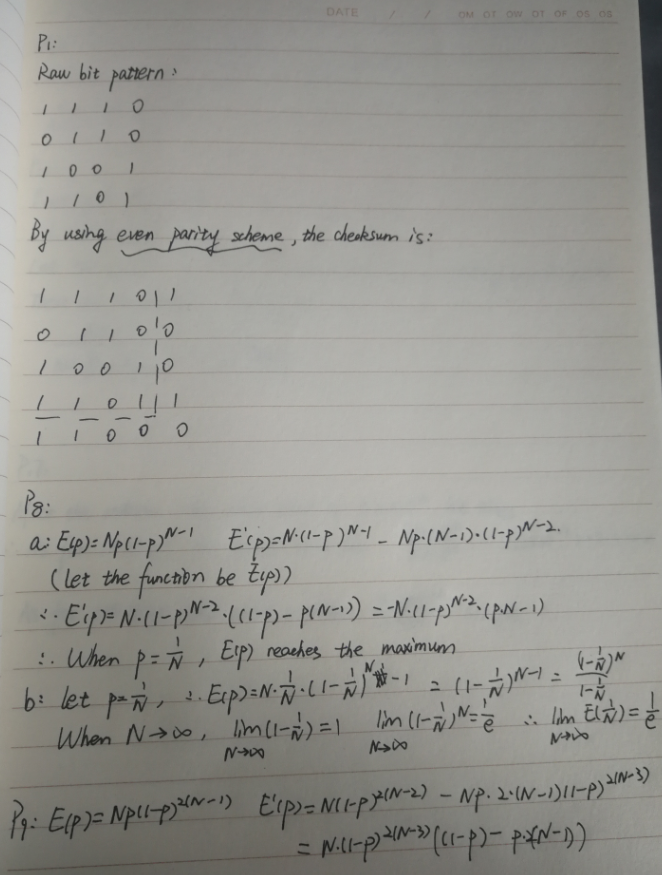 DATE / / MO TU WE TH FR SA SU
P1:
Raw bit pattern:
1 1 1 0
0 1 1 0
1 0 0 1
1 1 0 1
By using even parity scheme, the checksum is:
1 1 1 0 | 1
0 1 1 0 | 0
1 0 0 1 | 0
1 1 0 1 | 1
1 1 0 0 0
P8:
a: E(p)=Np(1-p)^{N-1} E'(p)=N·(1-p)^{N-1} - Np·(N-1)·(1-p)^{N-2}.
(let the function be E(p))
∴ E'(p)=N·(1-p)^{N-2}·((1-p)-p(N-1)) = -N·(1-p)^{N-2}·(p·N-1)
∴ When p=1/N, E(p) reaches the maximum
b: let p=1/N, ∴ E(p)=N·1/N·(1-1/N)^{N-1} = (1-1/N)^{N-1} = (1-1/N)^N / (1-1/N)
When N→∞, lim_{N→∞}(1-1/N)=1 lim_{N→∞}(1-1/N)^N=1/e ∴ lim_{N→∞} E(1/N)=1/e
P9: E(p)=Np(1-p)^{2(N-1)} E'(p)=N(1-p)^{2(N-2)} - Np·2·(N-1)(1-p)^{2(N-3)}
= N·(1-p)^{2(N-3)}((1-p)-p·2(N-1))